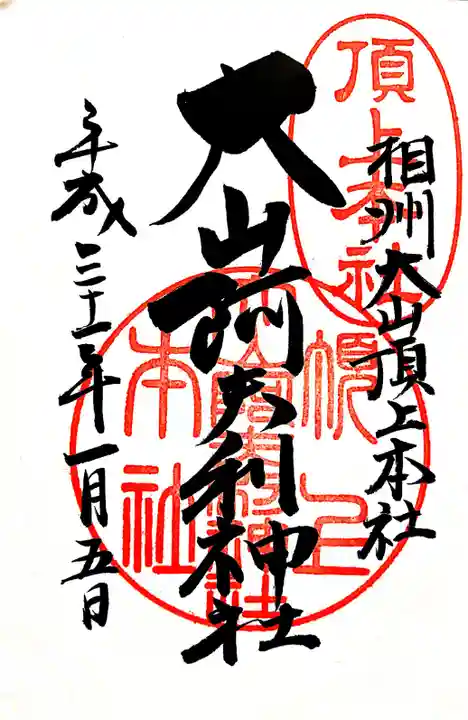 相州大山頂上本社
大山阿夫利神社
平成三十一年一月五日
頂上本社
頂上
本社